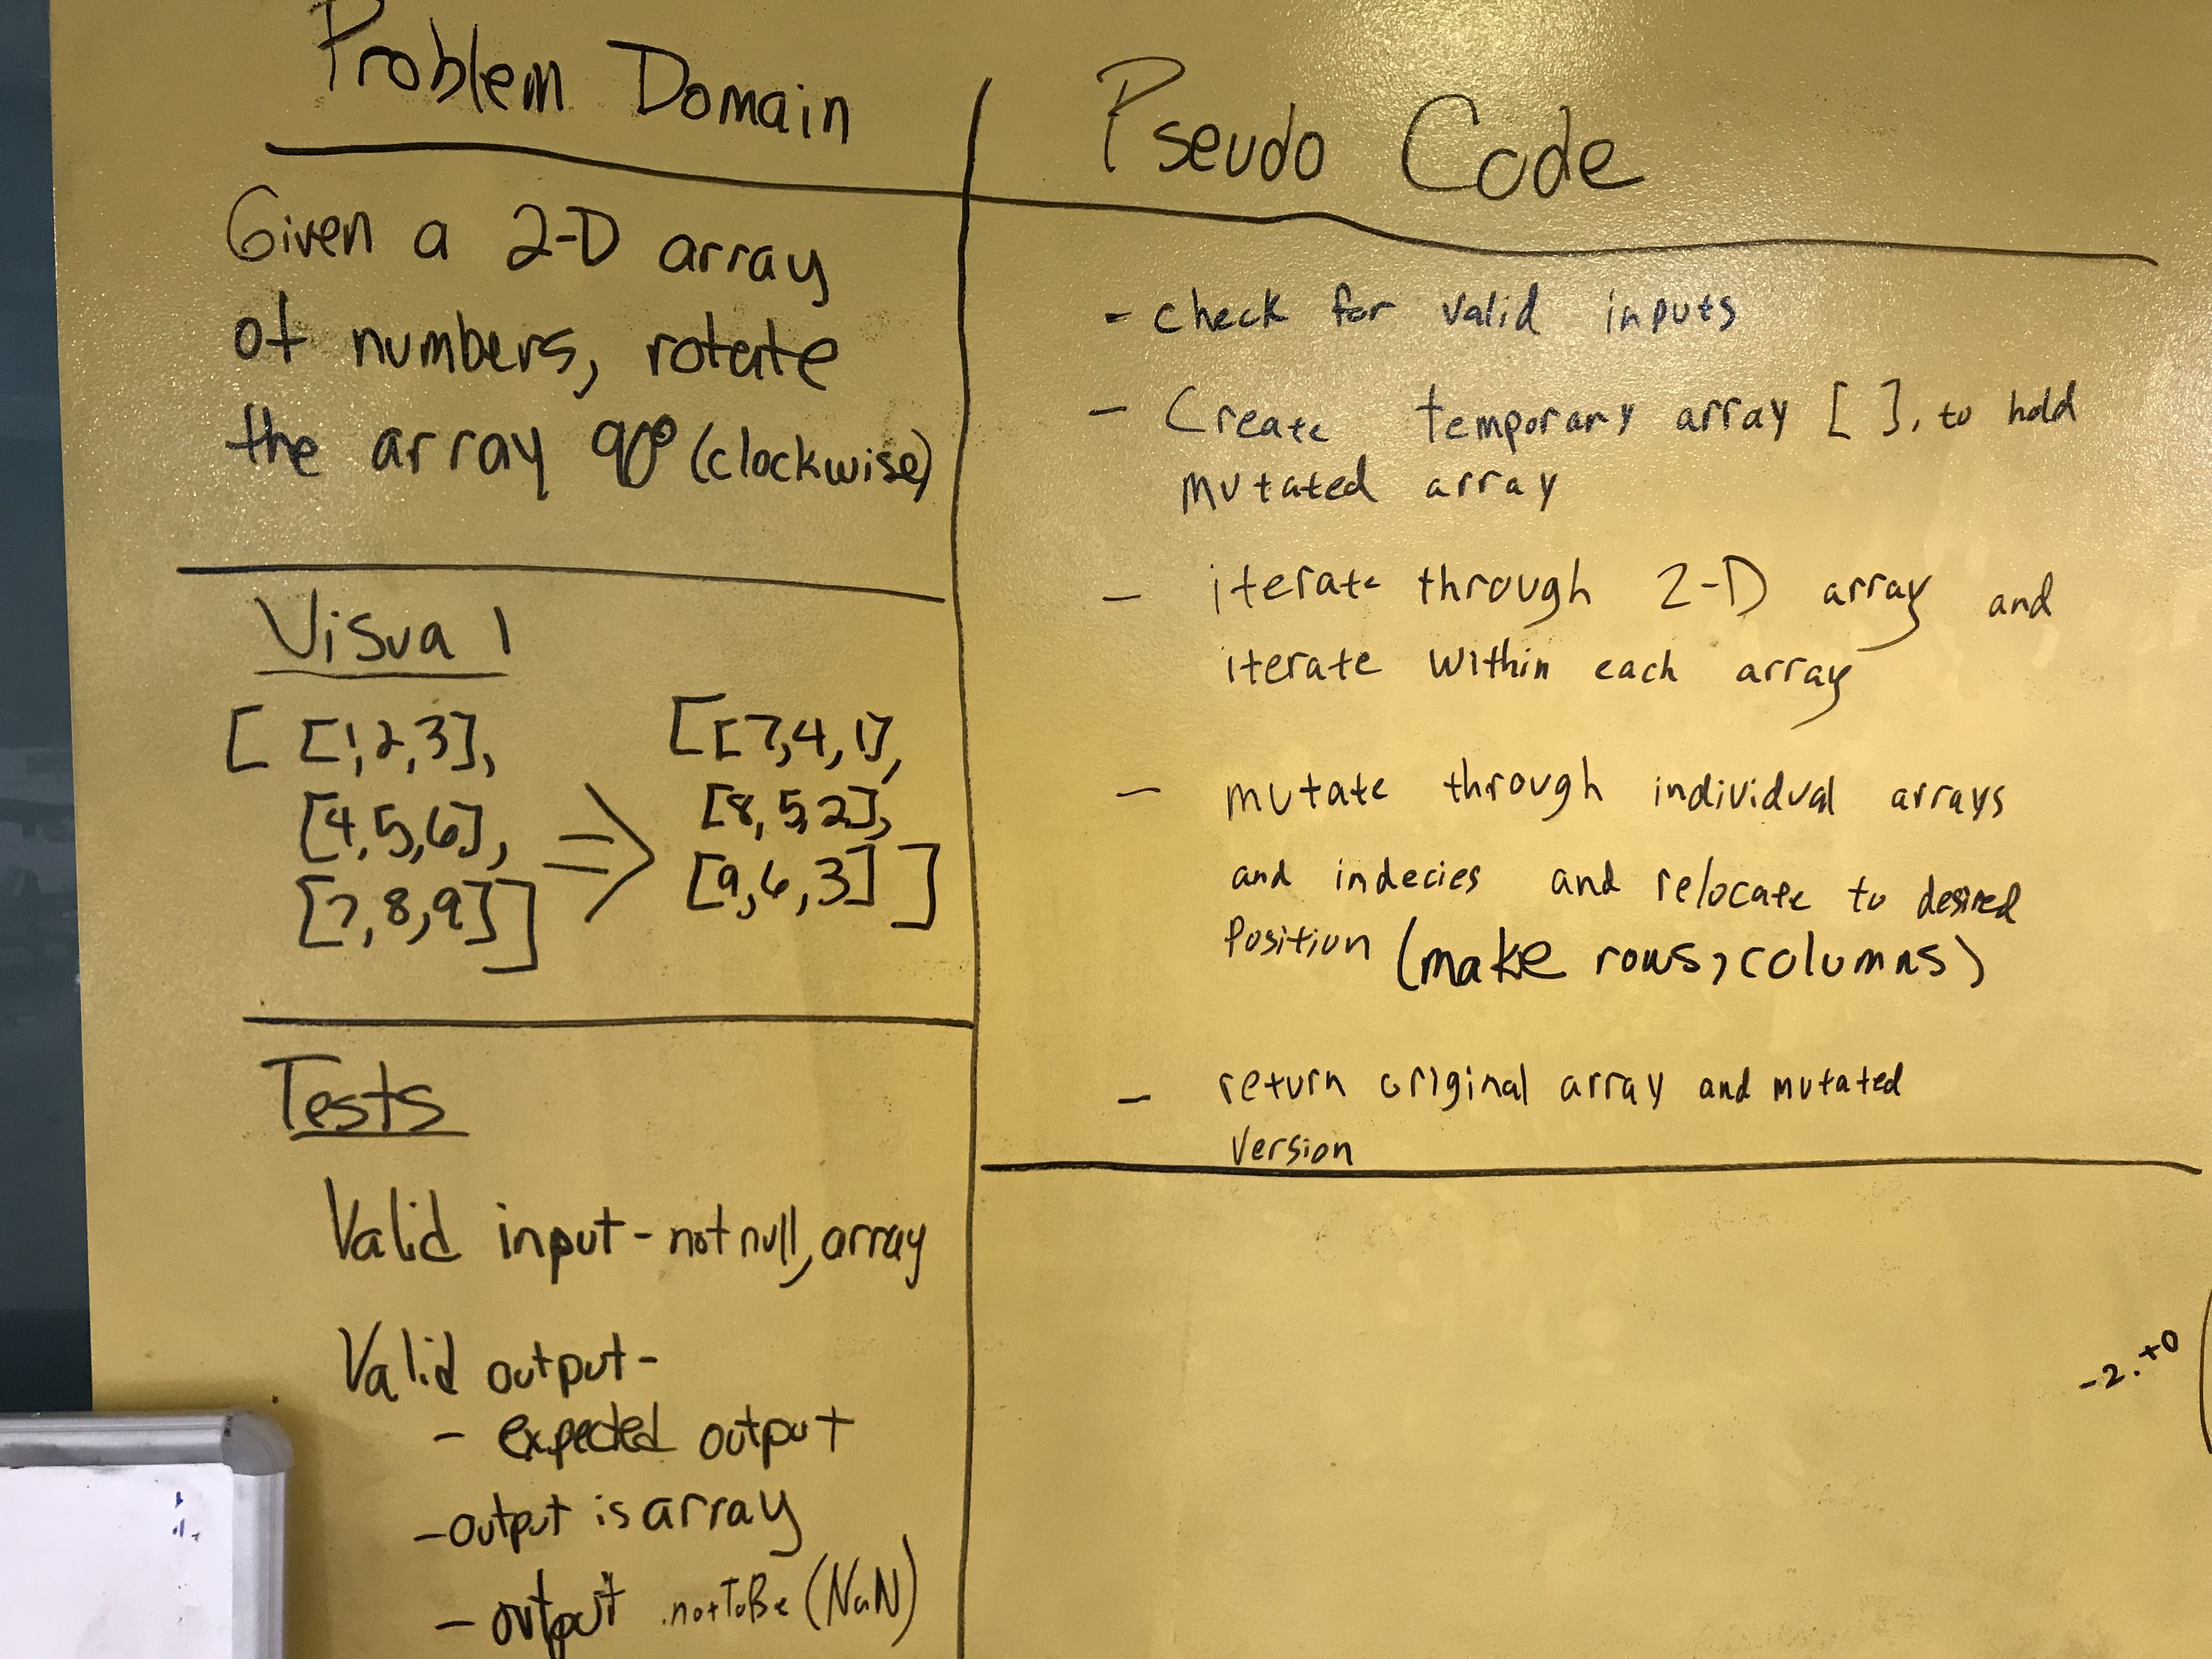 Problem Domain
Given a 2-D array
of numbers, rotate
the array 90° (clockwise)
Visual
[ [1,2,3],
[4,5,6],
[7,8,9]]
=>
[[7,4,1],
[8,5,2],
[9,6,3] ]
Tests
Valid input - not null, array
Valid output -
- expected output
- output is array
- output .notToBe (NaN)
Pseudo Code
- check for valid inputs
- Create temporary array [ ], to hold
mutated array
- iterate through 2-D array and
iterate within each array
- mutate through individual arrays
and indecies and relocate to desired
position (make rows, columns)
- return original array and mutated
version
-2.+0